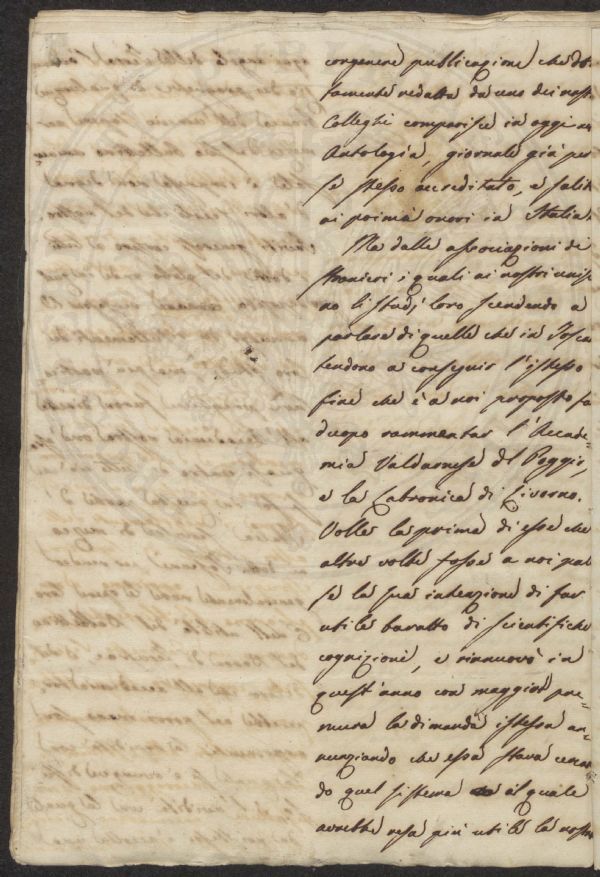 congenere publicazione che dot-
tamente redatta da uno dei nostri
Colleghi comparisce in oggi n
Antologia, giornale già per
se stesso accreditato, e salit
ai primi onori in Italia.
Ma dalle associazioni di
stranieri, i quali ai nostri unis
no li studj loro scendendo a
parlare di quelle che in Tosca
tendono a conseguir l'istesso
fine che è a noi proposto fa
duopo rammentar l'Accade-
mia Valdarnese del Poggio,
e la Labronica di Livorno.
Volle la prima di esse che
altre volte fosse a noi pale
se la sua intenzione di far
utile baratto di scientifiche
cognizioni, e rinnuovò in
quest'anno con maggior pre-
mura la dimanda istessa an-
nunziando che essa stava cercan
do quel sistema al quale
avrebbe resa più utile la nostra